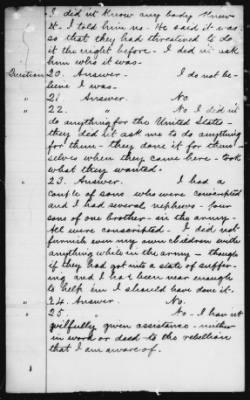 I did not know any body knew
it. I told him no. He said it was
so that they had threatened to do
it the night before. I did not ask
him who it was.
Question 20. Answer. I do not be-
lieve I was.
" 21. Answer. No
" 22. " No I did not
do anything for the United States -
they did not ask me to do anything
for them - they done it for them-
selves when they came here - took
what they wanted.
" 23. Answer. I had a
couple of sons who were conscripted
and I had several nephews - four
sons of one brother - in the army.
All were conscripted. I did not
furnish even my own children with
anything while in the army - though
if they had got into a state of suffer-
ing and I had been near enough
to help 'em I should have done it.
" 24. Answer. No.
" 25. " No - I have not
willfully given assistance - neither
in word or deed to the rebellion
that I am aware of.